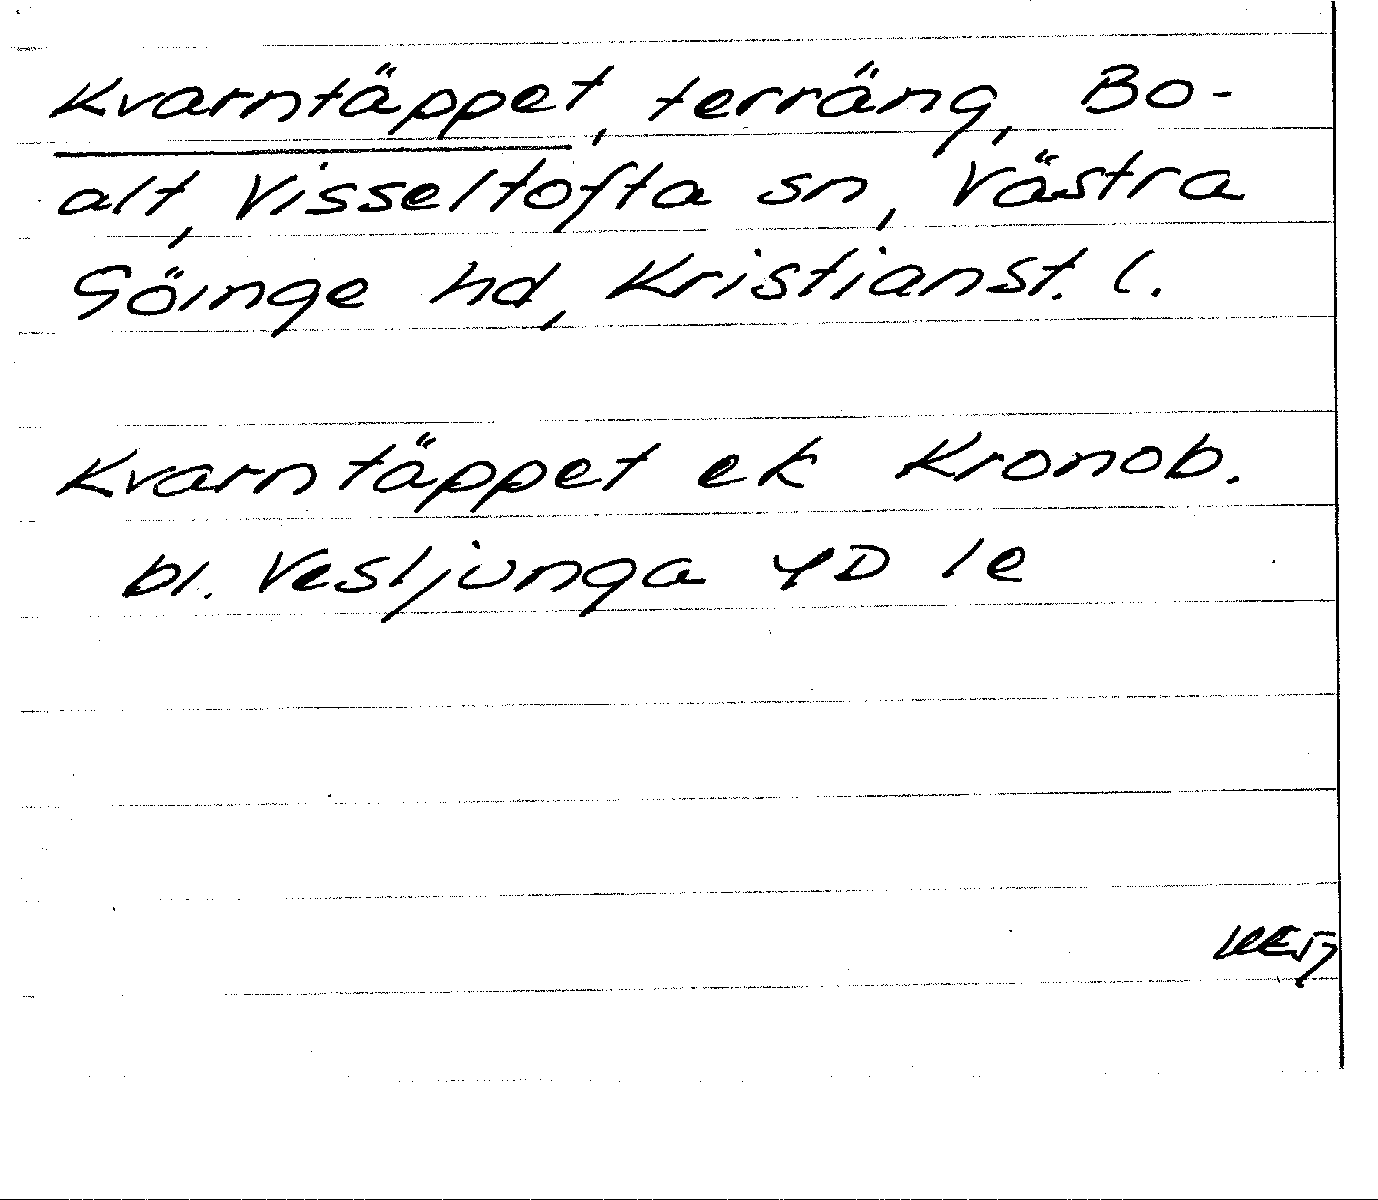 Kvarntäppet, terräng, Bo-
alt, Visseltofta sn, Västra
Göinge hd, Kristianst. l.
Kvarntäppet ek Kronob.
bl. Vesljunga 4D 1e